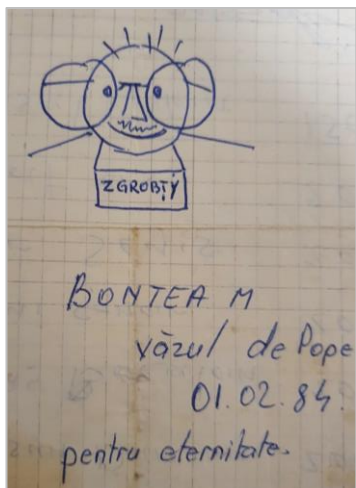 ZGROBȚY
BONTEA M
văzul de Pope
01.02.84.
pentru eternitate.